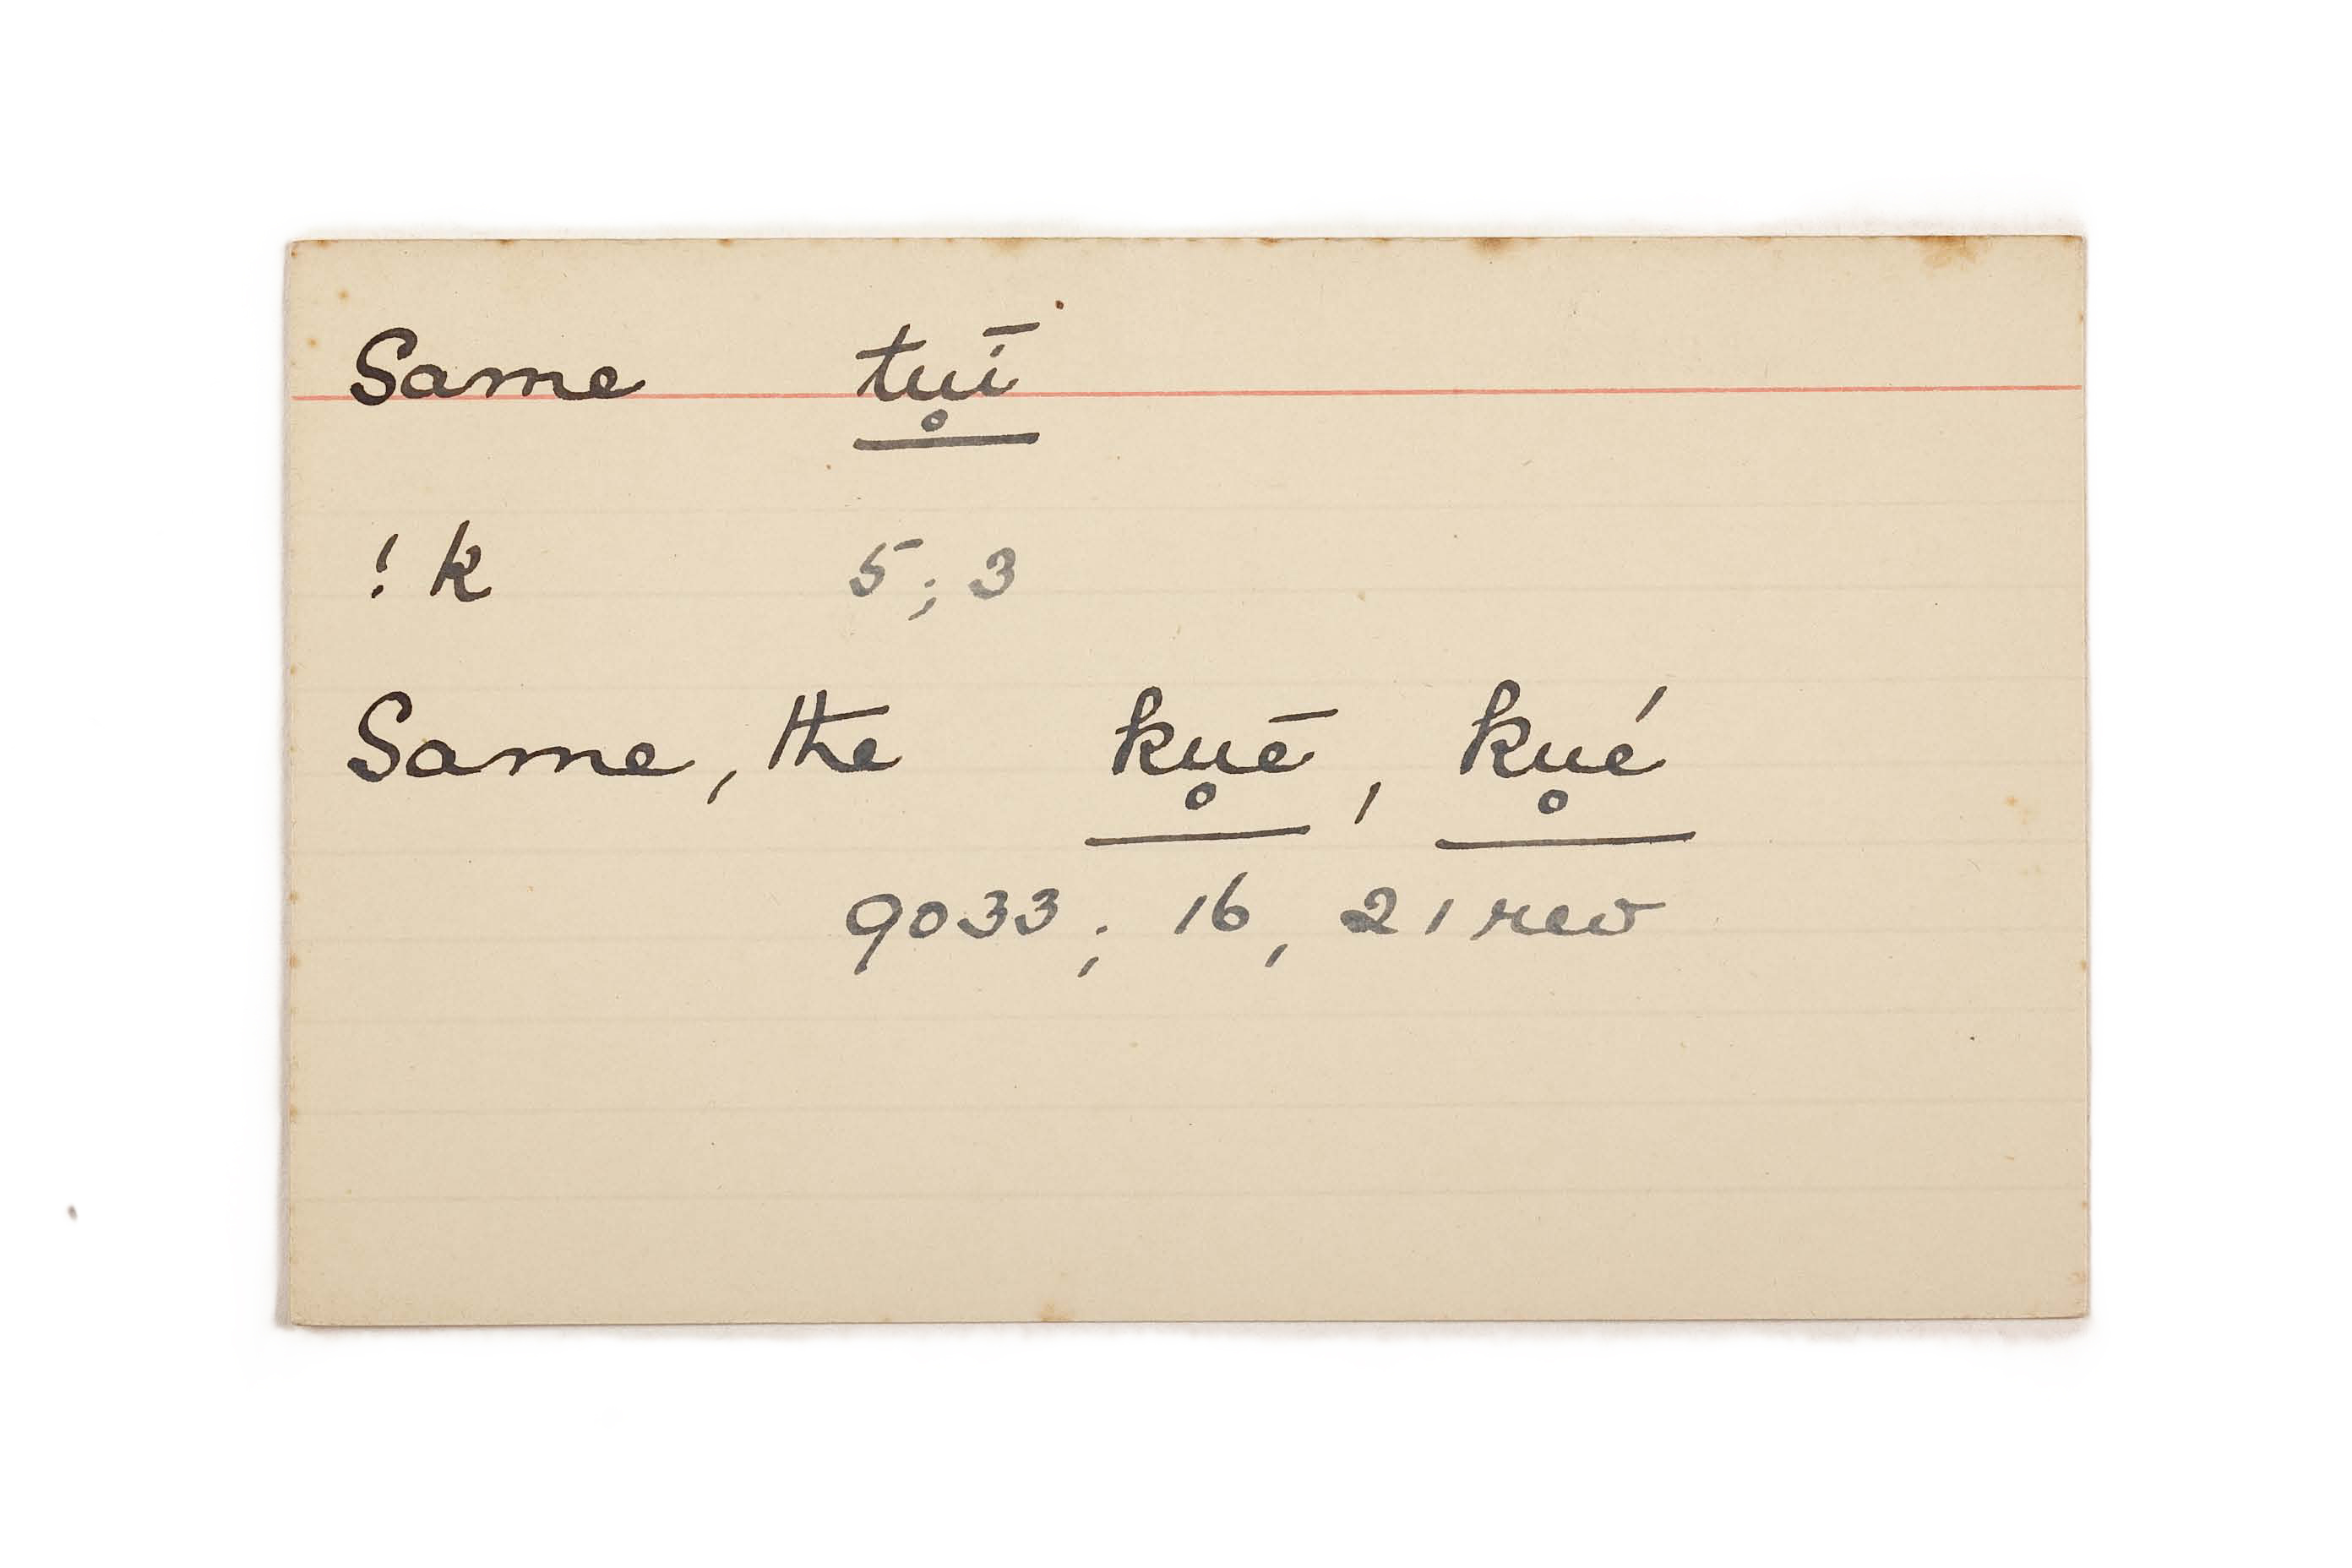 Same tu̥ī
! k 5; 3
Same, the ku̥ē, ku̥é
9033; 16, 21 rev